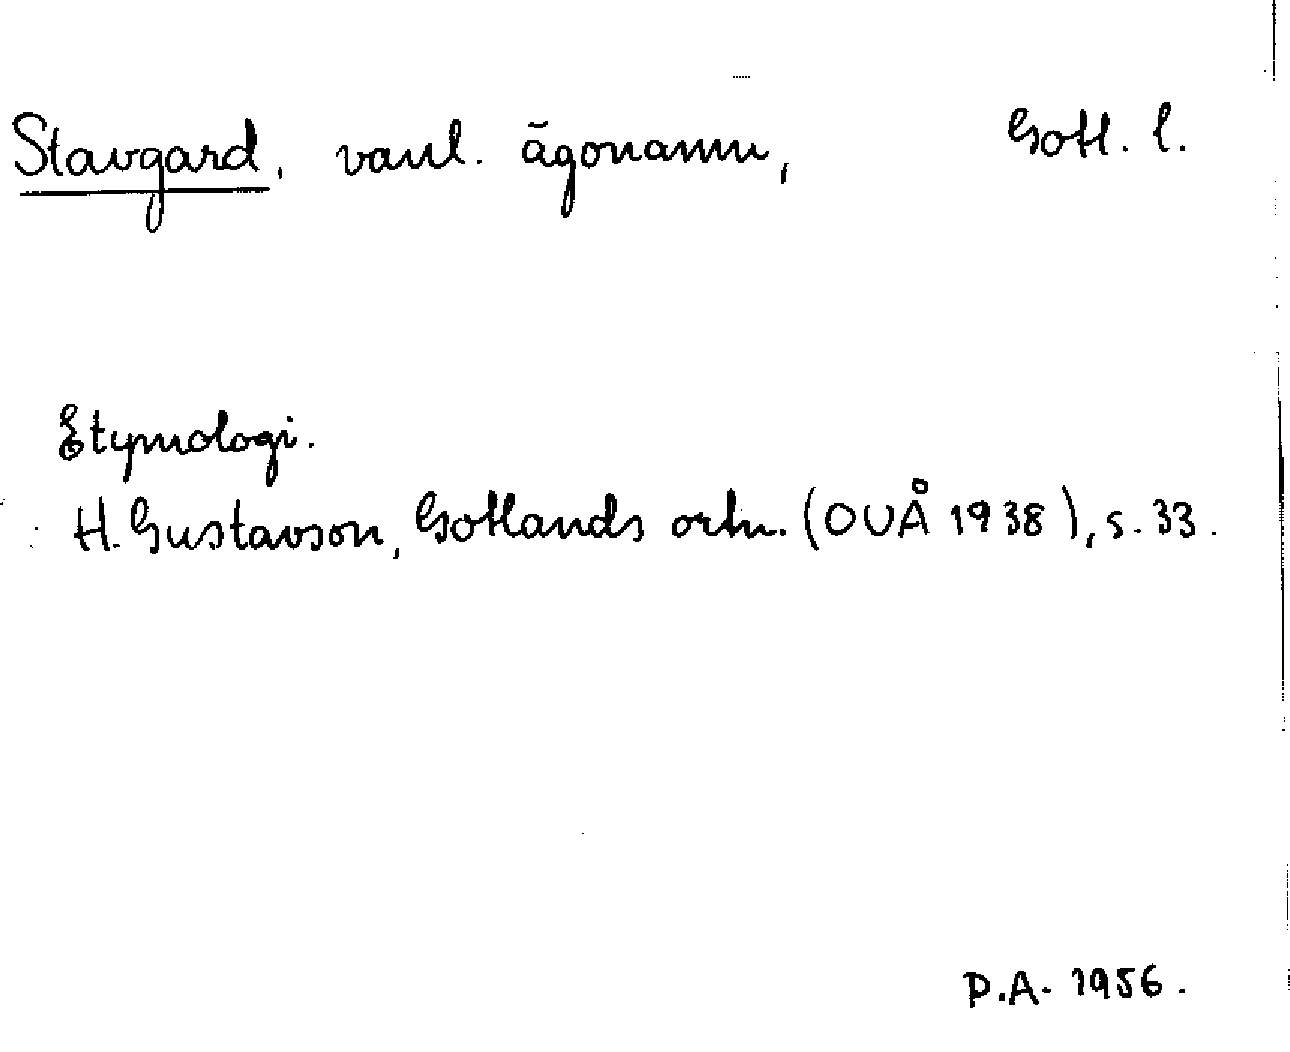 Stavgard, vanl. ägonamn, Gotl. l.
Etymologi.
H. Gustavson, Gotlands ortn. (OUÅ 1938), s. 33.
P.A. 1956.